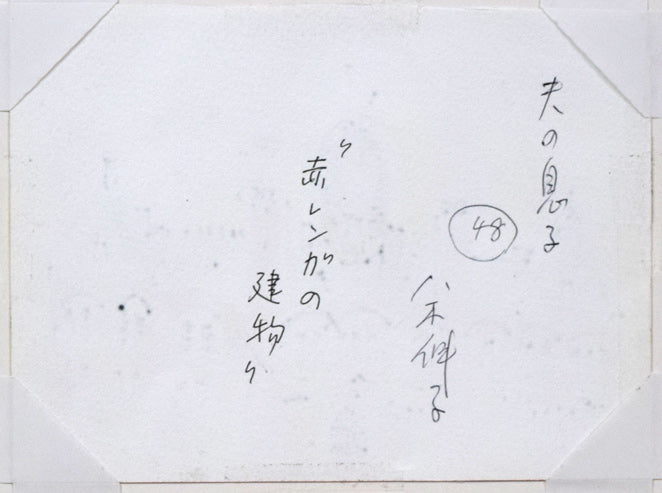 夫の息子
48
八木伸子
〝赤レンガの
建物〟